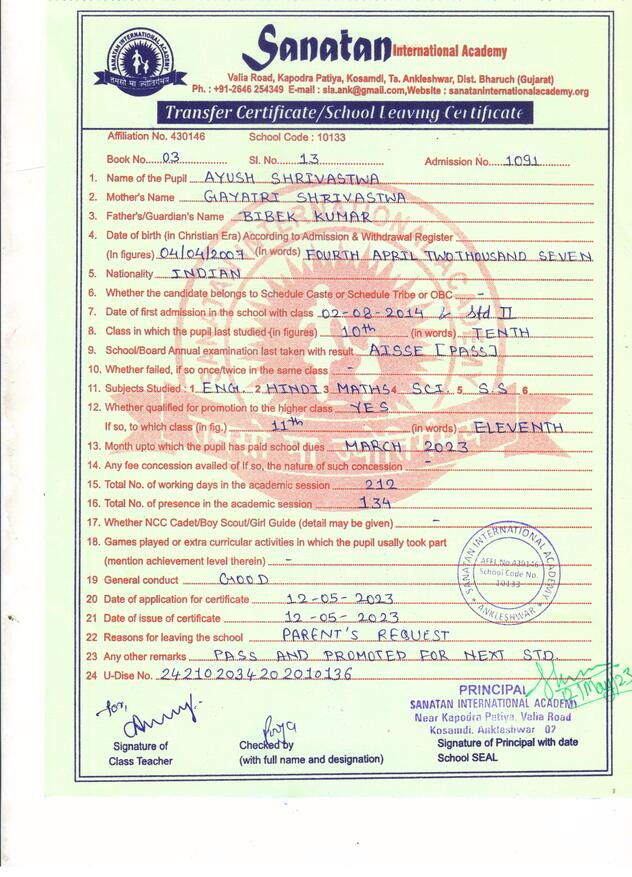 SANATAN INTERNATIONAL ACADEMY
तमसो मा ज्योतिर्गमय
Sanatan International Academy
Valia Road, Kapodra Patiya, Kosamdi, Ta. Ankleshwar, Dist. Bharuch (Gujarat)
Ph. : +91-2646 254349 E-mail : sia.ank@gmail.com,Website : sanataninternationalacademy.org
Transfer Certificate/School Leaving Certificate
Affiliation No. 430146 School Code : 10133
Book No. 03 Sl. No. 13 Admission No. 1091
1. Name of the Pupil AYUSH SHRIVASTWA
2. Mother's Name GAYATRI SHRIVASTWA
3. Father's/Guardian's Name BIBEK KUMAR
4. Date of birth (in Christian Era) According to Admission & Withdrawal Register
(In figures) 04/04/2007 (In words) FOURTH APRIL TWOTHOUSAND SEVEN
5. Nationality INDIAN
6. Whether the candidate belongs to Schedule Caste or Schedule Tribe or OBC -
7. Date of first admission in the school with class 02-08-2014 & Std II
8. Class in which the pupil last studied (in figures) 10th (in words) TENTH
9. School/Board Annual examination last taken with result AISSE [PASS]
10. Whether failed, if so once/twice in the same class -
11. Subjects Studied : 1 ENG. 2 HINDI 3 MATHS 4 SCI. 5 S.S 6
12. Whether qualified for promotion to the higher class YES
If so, to which class (in fig.) 11th (in words) ELEVENTH
13. Month upto which the pupil has paid school dues MARCH 2023
14. Any fee concession availed of If so, the nature of such concession -
15. Total No. of working days in the academic session 212
16. Total No. of presence in the academic session 134
17. Whether NCC Cadet/Boy Scout/Girl Guide (detail may be given) -
18. Games played or extra curricular activities in which the pupil usally took part
(mention achievement level therein) -
19 General conduct GOOD
20 Date of application for certificate 12-05-2023
21 Date of issue of certificate 12-05-2023
22 Reasons for leaving the school PARENT'S REQUEST
23 Any other remarks PASS AND PROMOTED FOR NEXT STD.
24 U-Dise No. 242102034202010136
SANATAN INTERNATIONAL ACADEMY
AFFI. No. 430146
School Code No.
10133
ANKLESHWAR
12/May/23
PRINCIPAL
SANATAN INTERNATIONAL ACADEMY
Near Kapodra Patiya, Valia Road
Kosamdi. Ankleshwar 02
for,
Pooja
Signature of Class Teacher
Checked by
(with full name and designation)
Signature of Principal with date
School SEAL